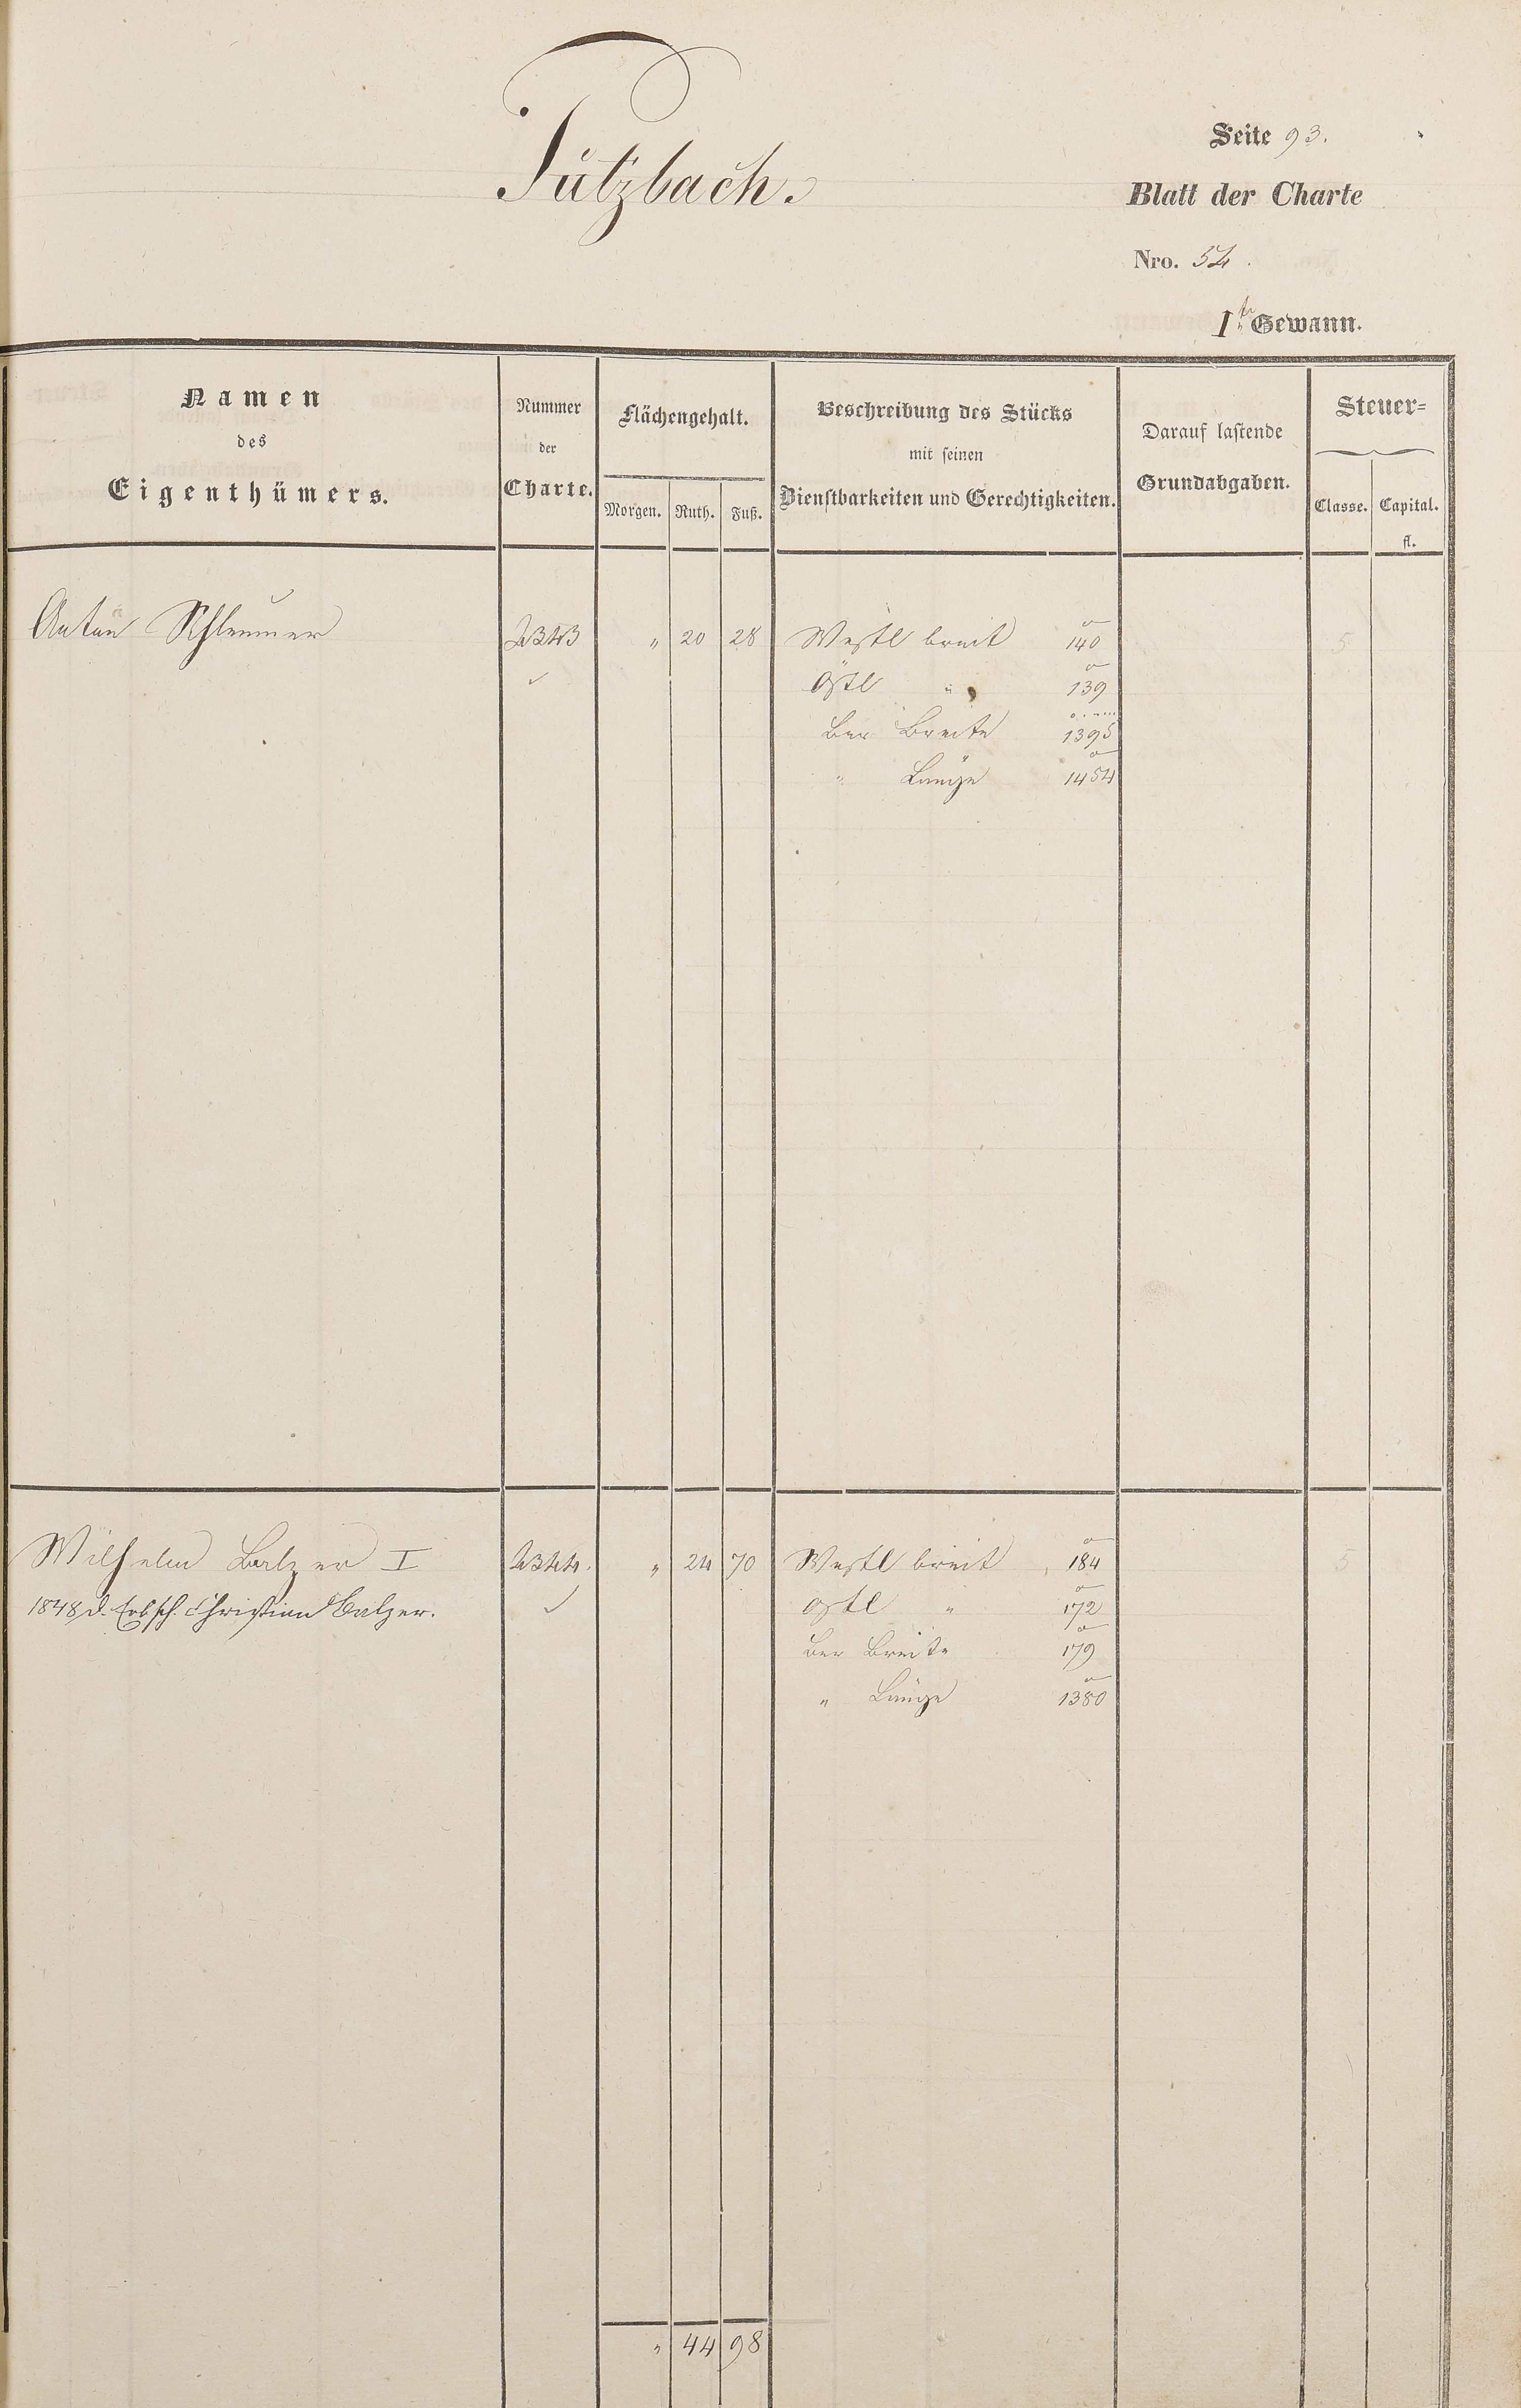 Putzbach.
Seite 93.
Blatt der Charte
Nro. 54.
I.te Gewann.
Namen
des
Eigenthümers.
Nummer
der
Charte.
Flächengehalt.
Morgen. Ruth. Fuß.
Beschreibung des Stücks
mit seinen
Dienstbarkeiten und Gerechtigkeiten.
Darauf lastende
Grundabgaben.
Steuer=
Classe. Capital.
fl.
Anton Schlemmer 2343 " 20 28 Westl breit 140 5
Östl " 139
Ber Breite 1395
" Länge 1454
Wilhelm Balzer I 2344. " 24 70 Westl breit 184 5
1848, d. Erbsch. Christian Balzer. Östl " 172
Ber Breite 179
" Länge 1380
" 44 98